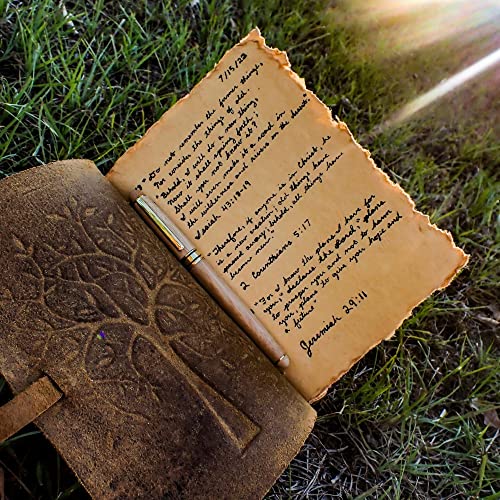 7/15/23
"Do not remember the former things,
Nor consider the things of old.
Behold, I will do a new thing,
Now it shall spring forth;
Shall you not know it?
I will even make a road in
the wilderness and rivers in the desert.
Isaiah 43:18-19
"Therefore, if anyone is in Christ, he
is a new creation; old things have
passed away; behold, all things have
become new."
2 Corinthians 5:17
"For I know the plans I have for
you," declares the Lord, "plans
to prosper you and not to harm
you, plans to give you hope and
a future."
Jeremiah 29:11